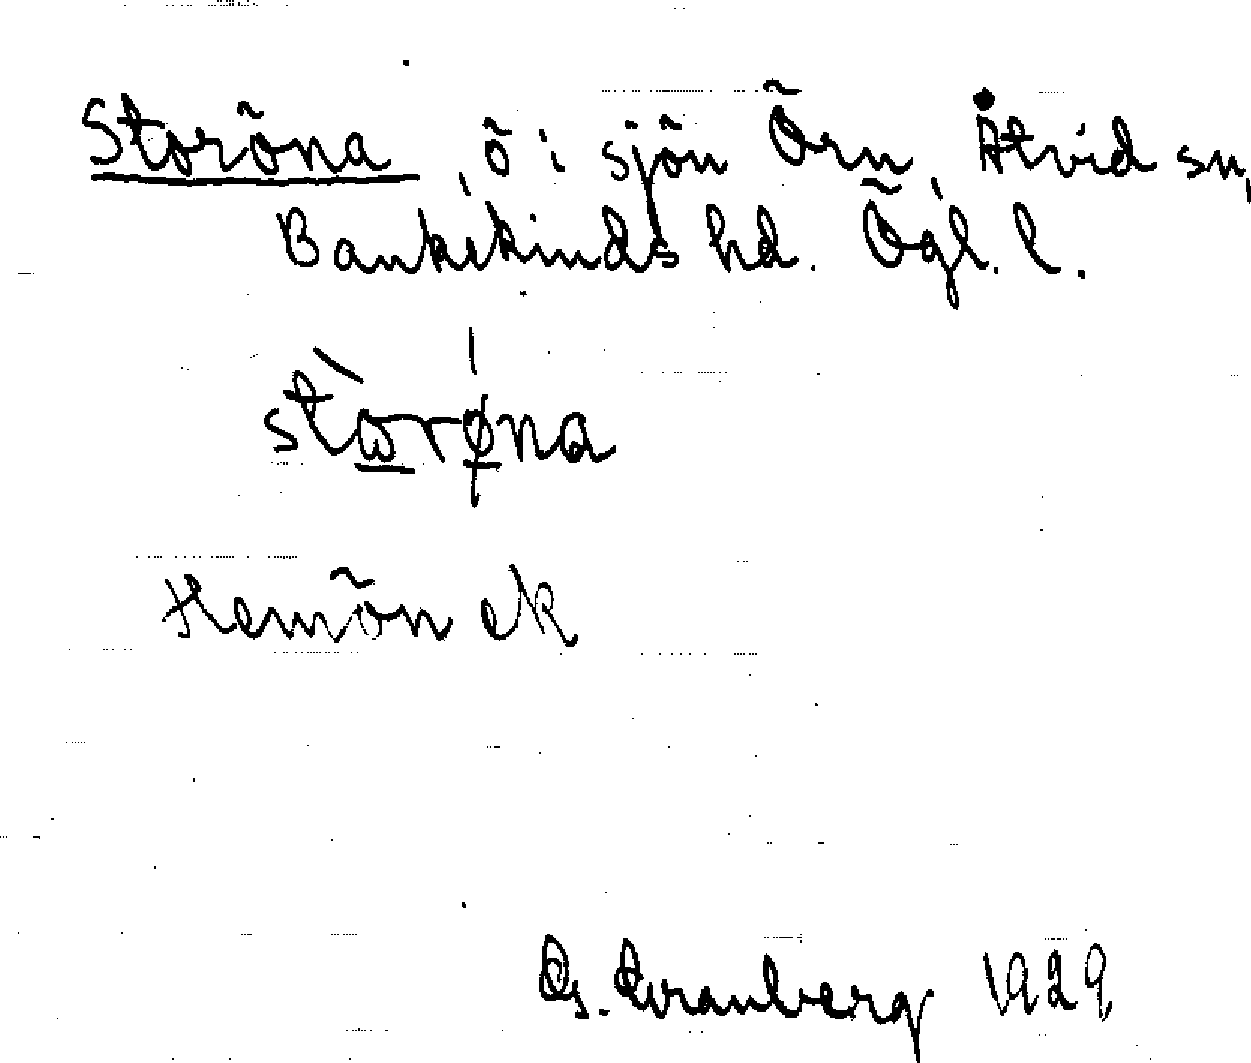 Storöna, ö i sjön Örn, Åtvid sn,
Bankekinds hd. Ögl. l.
stòrǿna
Hemön ek
G. Granberg 1929